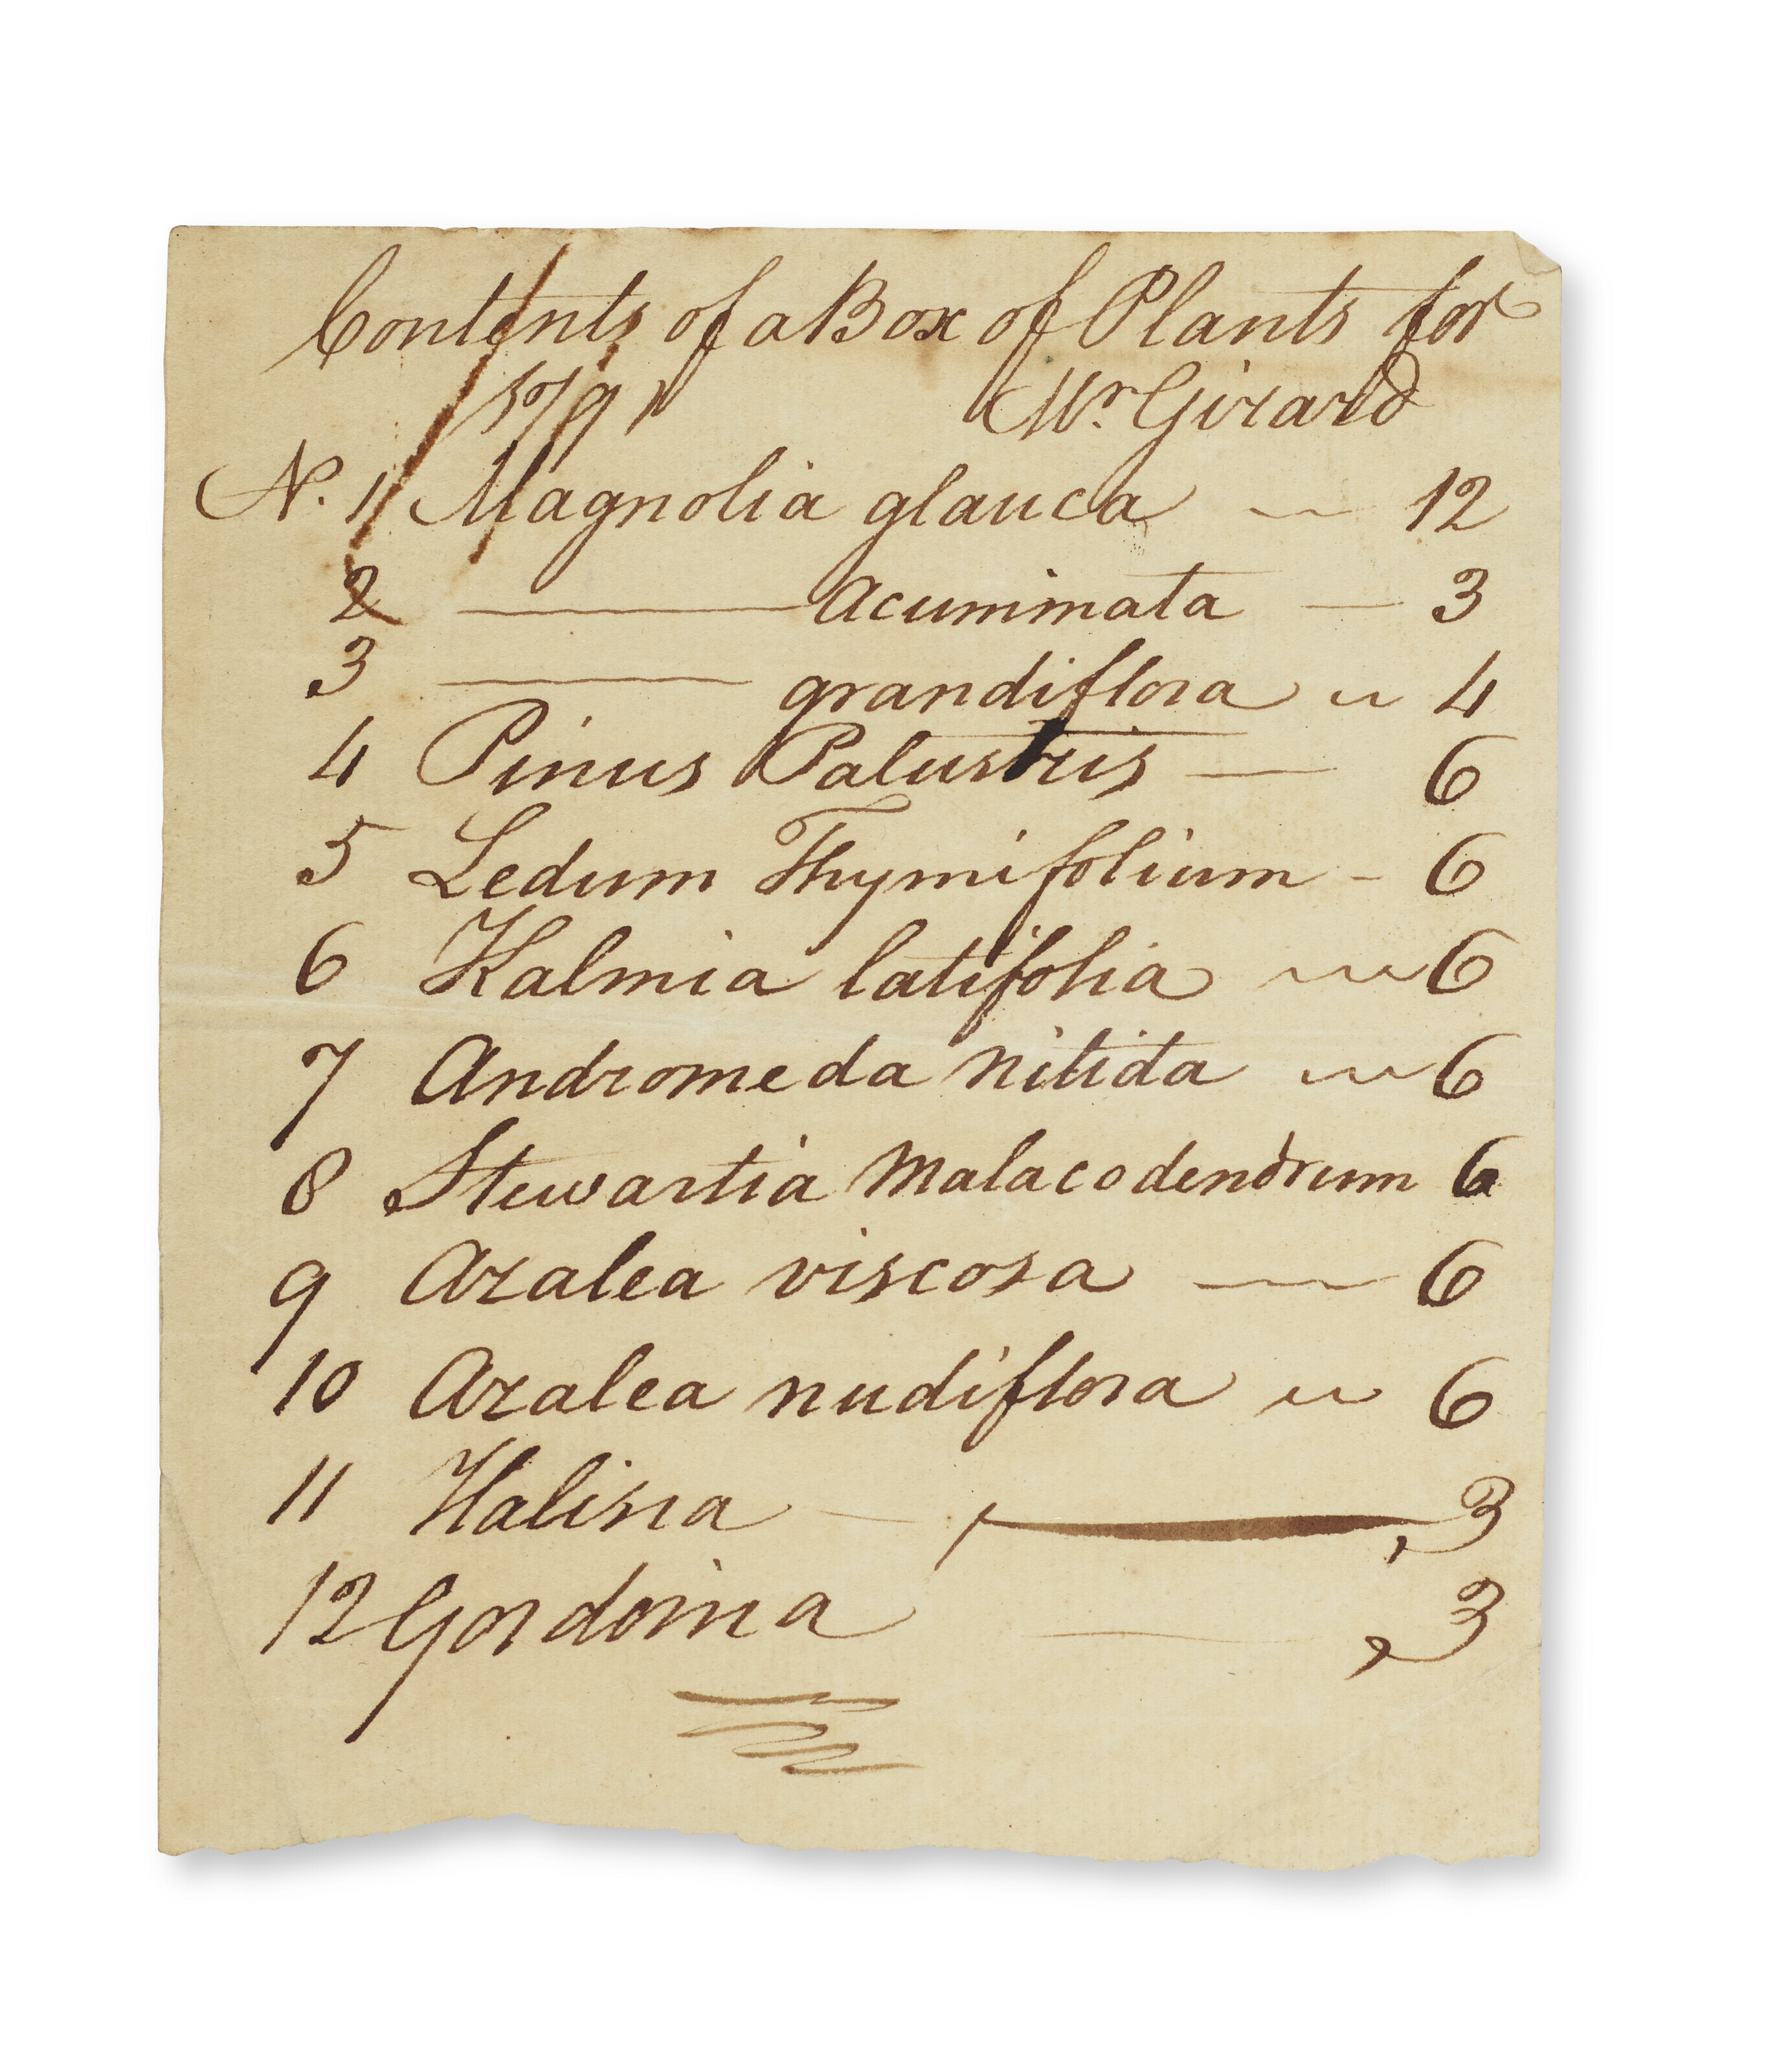 Contents of a Box of Plants for
Mr. Girard
N. 1 Magnolia glauca 12
2 —— Acuminata — 3
3 —— grandiflora 4
4 Pinus Palustris — 6
5 Ledum Thymifolium - 6
6 Kalmia latifolia 6
7 Andromeda nitida 6
8 Stewartia Malacodendrum 6
9 Azalea viscosa — 6
10 Azalea nudiflora 6
11 Halisia — 3
12 Gordonia — 3